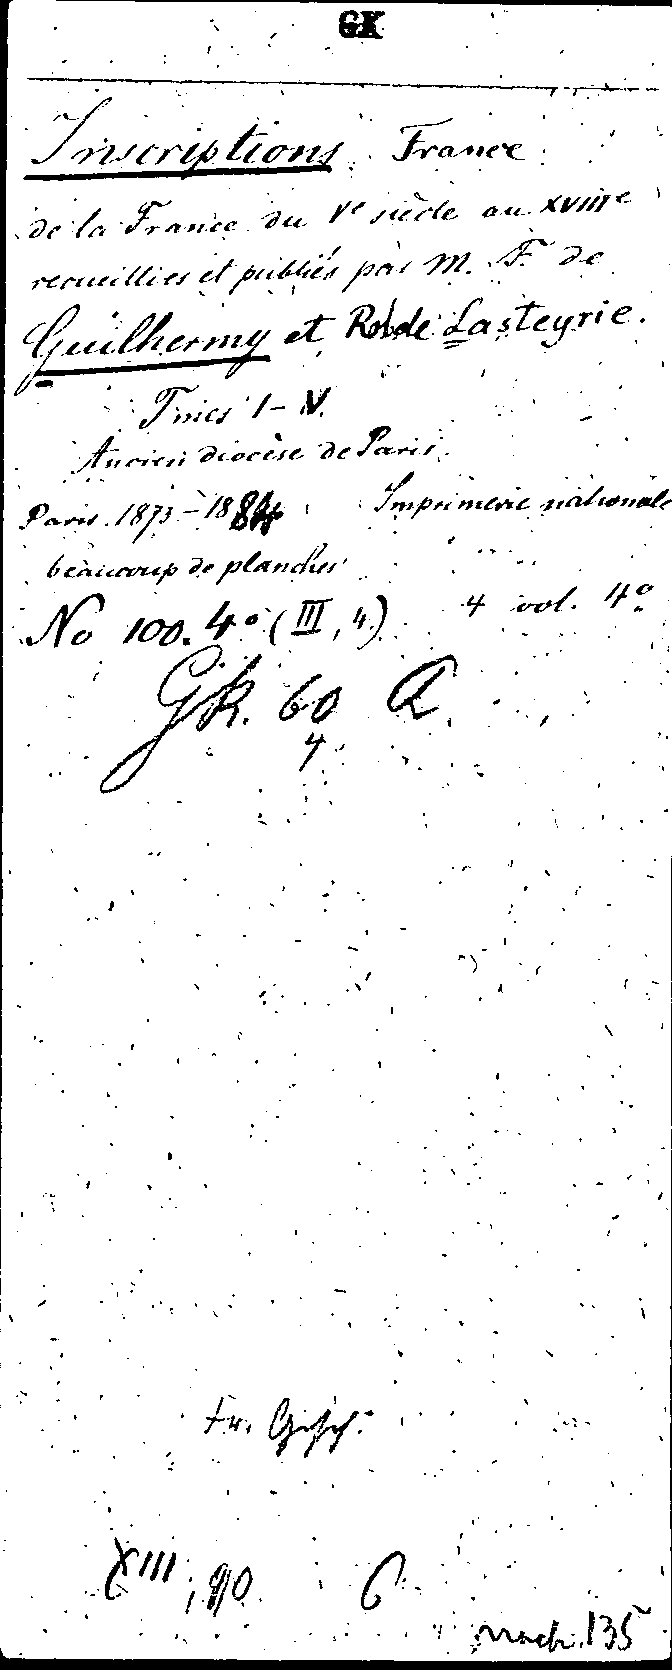 GK
Inscriptions France
de la France du Ve siècle au XVIIIe
recueillies et publiés par M. F. de
Guilhermy et Rob de Lasteyrie.
Tmes I-V.
Ancien diocèse de Paris.
Paris. 1873-1884 Imprimerie nationale
beaucoup de planches
No 100. 4o (III, 4.) 4 vol. 4o
Gk. 60 a
4
Fr. Gesch.
XIII, 90 6
nach. 135